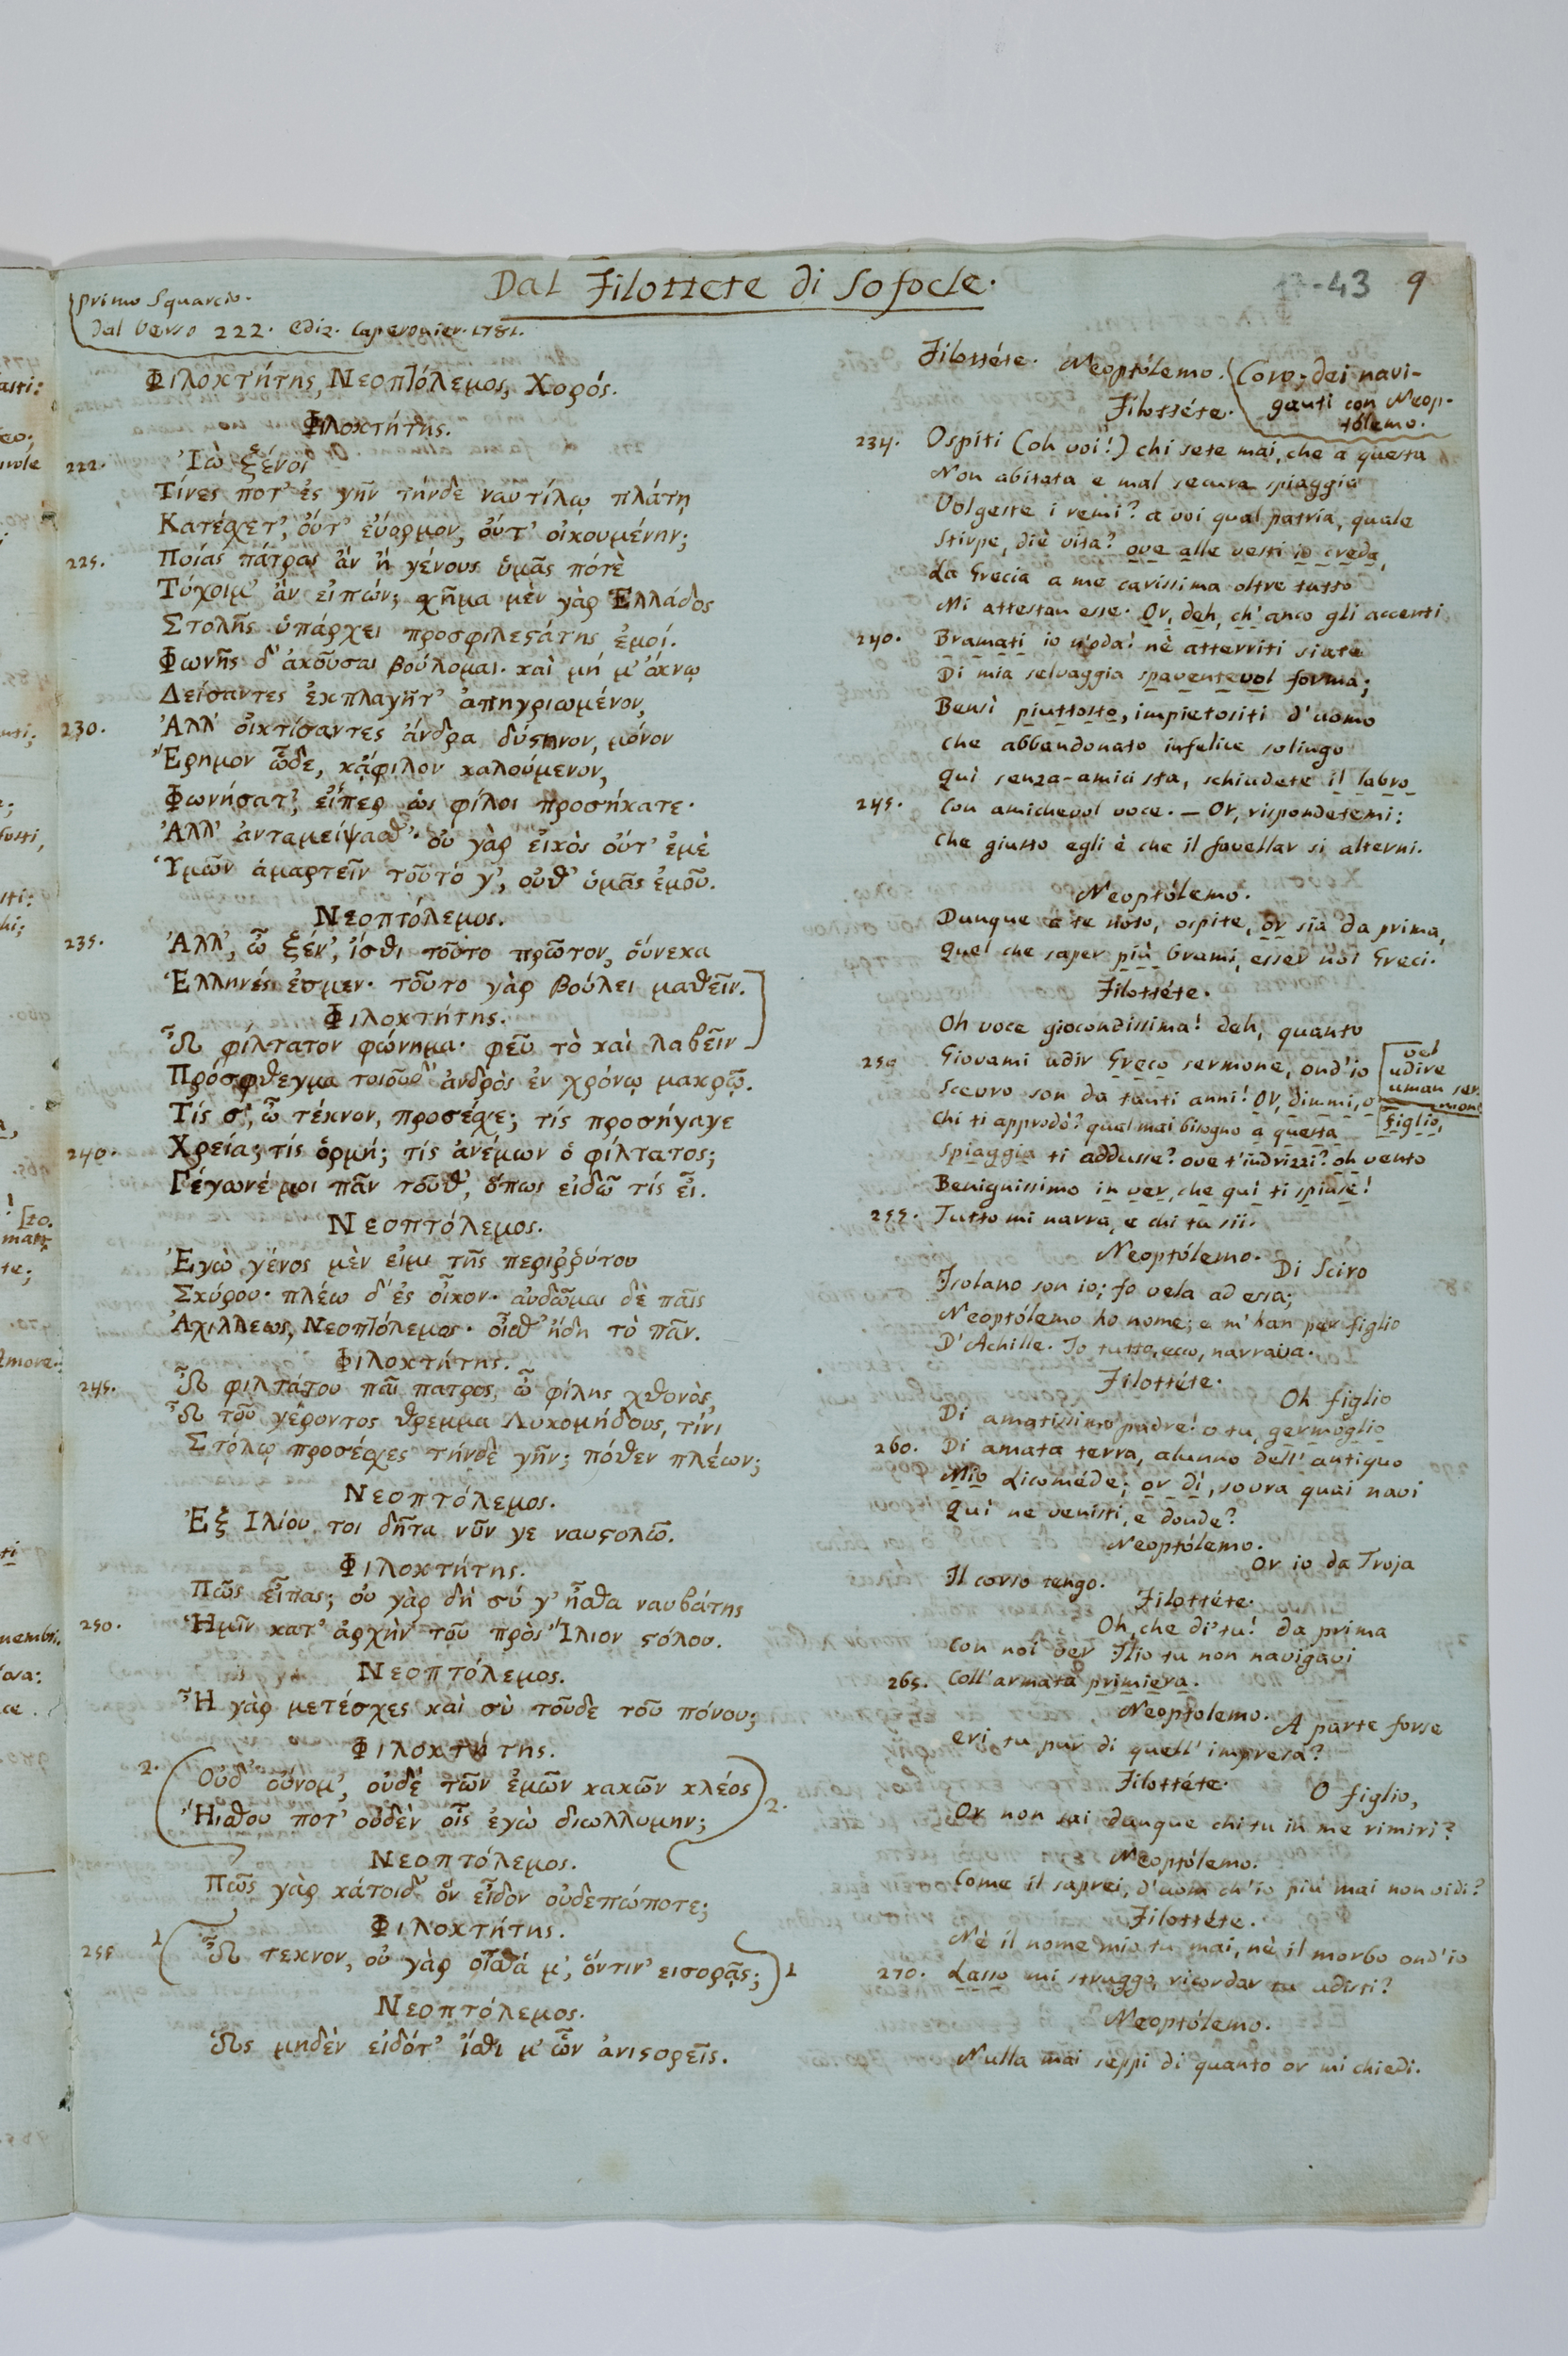 Dal Filottete di Sofocle.
17-43 9
Primo Squarcio.
Dal Verso 222. Ediz. Caperonier. 1781.
Φιλοκτήτης, Νεοπτόλεμος, Χορός.
Φιλοκτήτης.
222. Ἰὼ ξένοι
Τίνες ποτ' ἐς γῆν τήνδε ναυτίλῳ πλάτῃ
Κατέσχετ', οὔτ' εὔορμον, οὔτ' οἰκουμένην;
225. Ποίας πάτρας ἂν ἢ γένους ὑμᾶς πότὲ
Τύχοιμ' ἂν εἰπών; σχῆμα μὲν γὰρ Ἑλλάδος
Στολῆς ὑπάρχει προσφιλεςάτης ἐμοί.
Φωνῆς δ' ἀκοῦσαι βούλομαι. καὶ μή μ' ὄκνῳ
Δείσαντες ἐκπλαγῆτ' ἀπηγριωμένον,
230. Ἀλλ' οἰκτίσαντες ἄνδρα δύςηνον, μόνον
Ἔρημον ὧδε, κἄφιλον καλούμενον,
Φωνήσατ', εἴπερ ὡς φίλοι προσήκατε.
Ἀλλ' ἀνταμείψασθ'· οὐ γὰρ εἰκὸς οὔτ' ἐμὲ
Ὑμῶν ἁμαρτεῖν τοῦτό γ', οὔθ' ὑμᾶς ἐμοῦ.
Νεοπτόλεμος.
235. Ἀλλ', ὦ ξέν', ἴσθι τοῦτο πρῶτον, οὕνεκα
Ἕλληνές ἐσμεν· τοῦτο γὰρ βούλει μαθεῖν.
Φιλοκτήτης.
Ὦ φίλτατον φώνημα· φεῦ τὸ καὶ λαβεῖν
Πρόσφθεγμα τοιοῦδ' ἀνδρὸς ἐν χρόνῳ μακρῷ.
Τίς σ', ὦ τέκνον, προσέσχε; τίς προσήγαγε
240. Χρεία; τίς ὁρμή; τίς ἀνέμων ὁ φίλτατος;
Γέγωνέ μοι πᾶν τοῦθ', ὅπως εἰδῶ τίς εἶ.
Νεοπτόλεμος.
Ἐγὼ γένος μὲν εἰμι τῆς περιῤῥύτου
Σκύρου· πλέω δ' ἐς οἶκον· αὐδῶμαι δὲ παῖς
Ἀχιλλέως, Νεοπτόλεμος· οἶσθ' ἤδη τὸ πᾶν.
Φιλοκτήτης.
245. Ὦ φιλτάτου παῖ πατρος, ὦ φίλης χθονὸς,
Ὦ τοῦ γέροντος θρεμμα Λυκομήδους, τίνι
Στόλῳ προσέσχες τήνδὲ γῆν; πόθεν πλέων;
Νεοπτόλεμος.
Ἐξ Ἰλίου τοι δῆτα νῦν γε ναυςολῶ.
Φιλοκτήτης.
Πῶς εἶπας; οὐ γὰρ δὴ σύ γ' ἦσθα ναυβάτης
250. Ἡμῖν κατ' ἀρχὴν τοῦ πρὸς Ἴλιον ςόλου.
Νεοπτόλεμος.
Ἦ γὰρ μετέσχες καὶ σὺ τοῦδε τοῦ πόνου;
Φιλοκτήτης.
2. Οὐδ' οὔνομ', οὐδὲ τῶν ἐμῶν κακῶν κλέος 2.
Ἤισθου ποτ' οὐδὲν οἷς ἐγὼ διωλλυμην;
Νεοπτόλεμος.
Πῶς γὰρ κάτοιδ' ὃν εἶδον οὐδεπώποτε;
Φιλοκτήτης.
255 1 Ὦ τεκνον, οὐ γὰρ οἶσθά μ', ὅντιν' εισορᾷς; 1
Νεοπτόλεμος.
Ὡς μηδὲν εἰδότ' ἴσθι μ' ὧν ἀνιςορεῖς.
Filottéte. Neoptólemo. Coro, dei navi-
ganti con Neop-
tólemo.
Filottéte.
234. Ospiti (oh voi!) chi sete mai, che a questa
Non abitata e mal secura spiaggia
Volgeste i remi? a voi qual patria, quale
Stirpe, diè vita? ove alle vesti io creda,
La Grecia a me carissima oltre tutto
Mi attestan esse. Or, deh, ch'anco gli accenti
240. Bramati io n'oda! nè atterriti siate
Di mia selvaggia spaventevol forma;
Bensì piuttosto, impietositi d'uomo
Che abbandonato infelice solingo
Quì senza-amici sta, schiudete il labro
245. Con amichevol voce. — Or, rispondetemi:
Che giusto egli è che il favellar si alterni.
Neoptólemo.
Dunque a te noto, ospite, or sia da prima,
Quel che saper più brami, esser noi Greci.
Filottéte.
Oh voce giocondissima! deh, quanto
250 Giovami udir Greco sermone, ond'io
vel
udire
uman ser-
mone
Scevro son da tanti anni! Or, dimmi, o
Figlio,
Chi ti approdò? qual mai bisogno a questa
Spiaggia ti addusse? ove t'indrizzi? oh vento
Benignissimo in ver, che quì ti spinse!
255. Tutto mi narra, e chi tu sii.
Neoptólemo.
Di Sciro
Isolano son io; fo vela ad essa;
Neoptólemo ho nome; e m'han per figlio
D'Achille. Io tutto, ecco, narrava.
Filottéte.
Oh figlio
Di amatissimo padre! o tu, germoglio
260. Di amata terra, alunno dell'antiquo
Mio Licoméde; or dì, sovra quai navi
Quì ne venisti, e donde?
Neoptólemo.
Or io da Troja
Il corso tengo.
Filottéte.
Oh, che di' tu! da prima
Con noi ver Ilio tu non navigavi
265. Coll'armata primiera.
Neoptolemo.
A parte forse
eri tu pur di quell'impresa?
Filottéte.
O figlio,
Or non sai dunque chi tu in me rimiri?
Neoptólemo.
Come il saprei, d'uom ch'io più mai non vidi?
Filottéte.
Nè il nome mio tu mai, nè il morbo ond'io
270. Lasso mi struggo, ricordar tu udisti?
Neoptólemo.
Nulla mai seppi di quanto or mi chiedi.